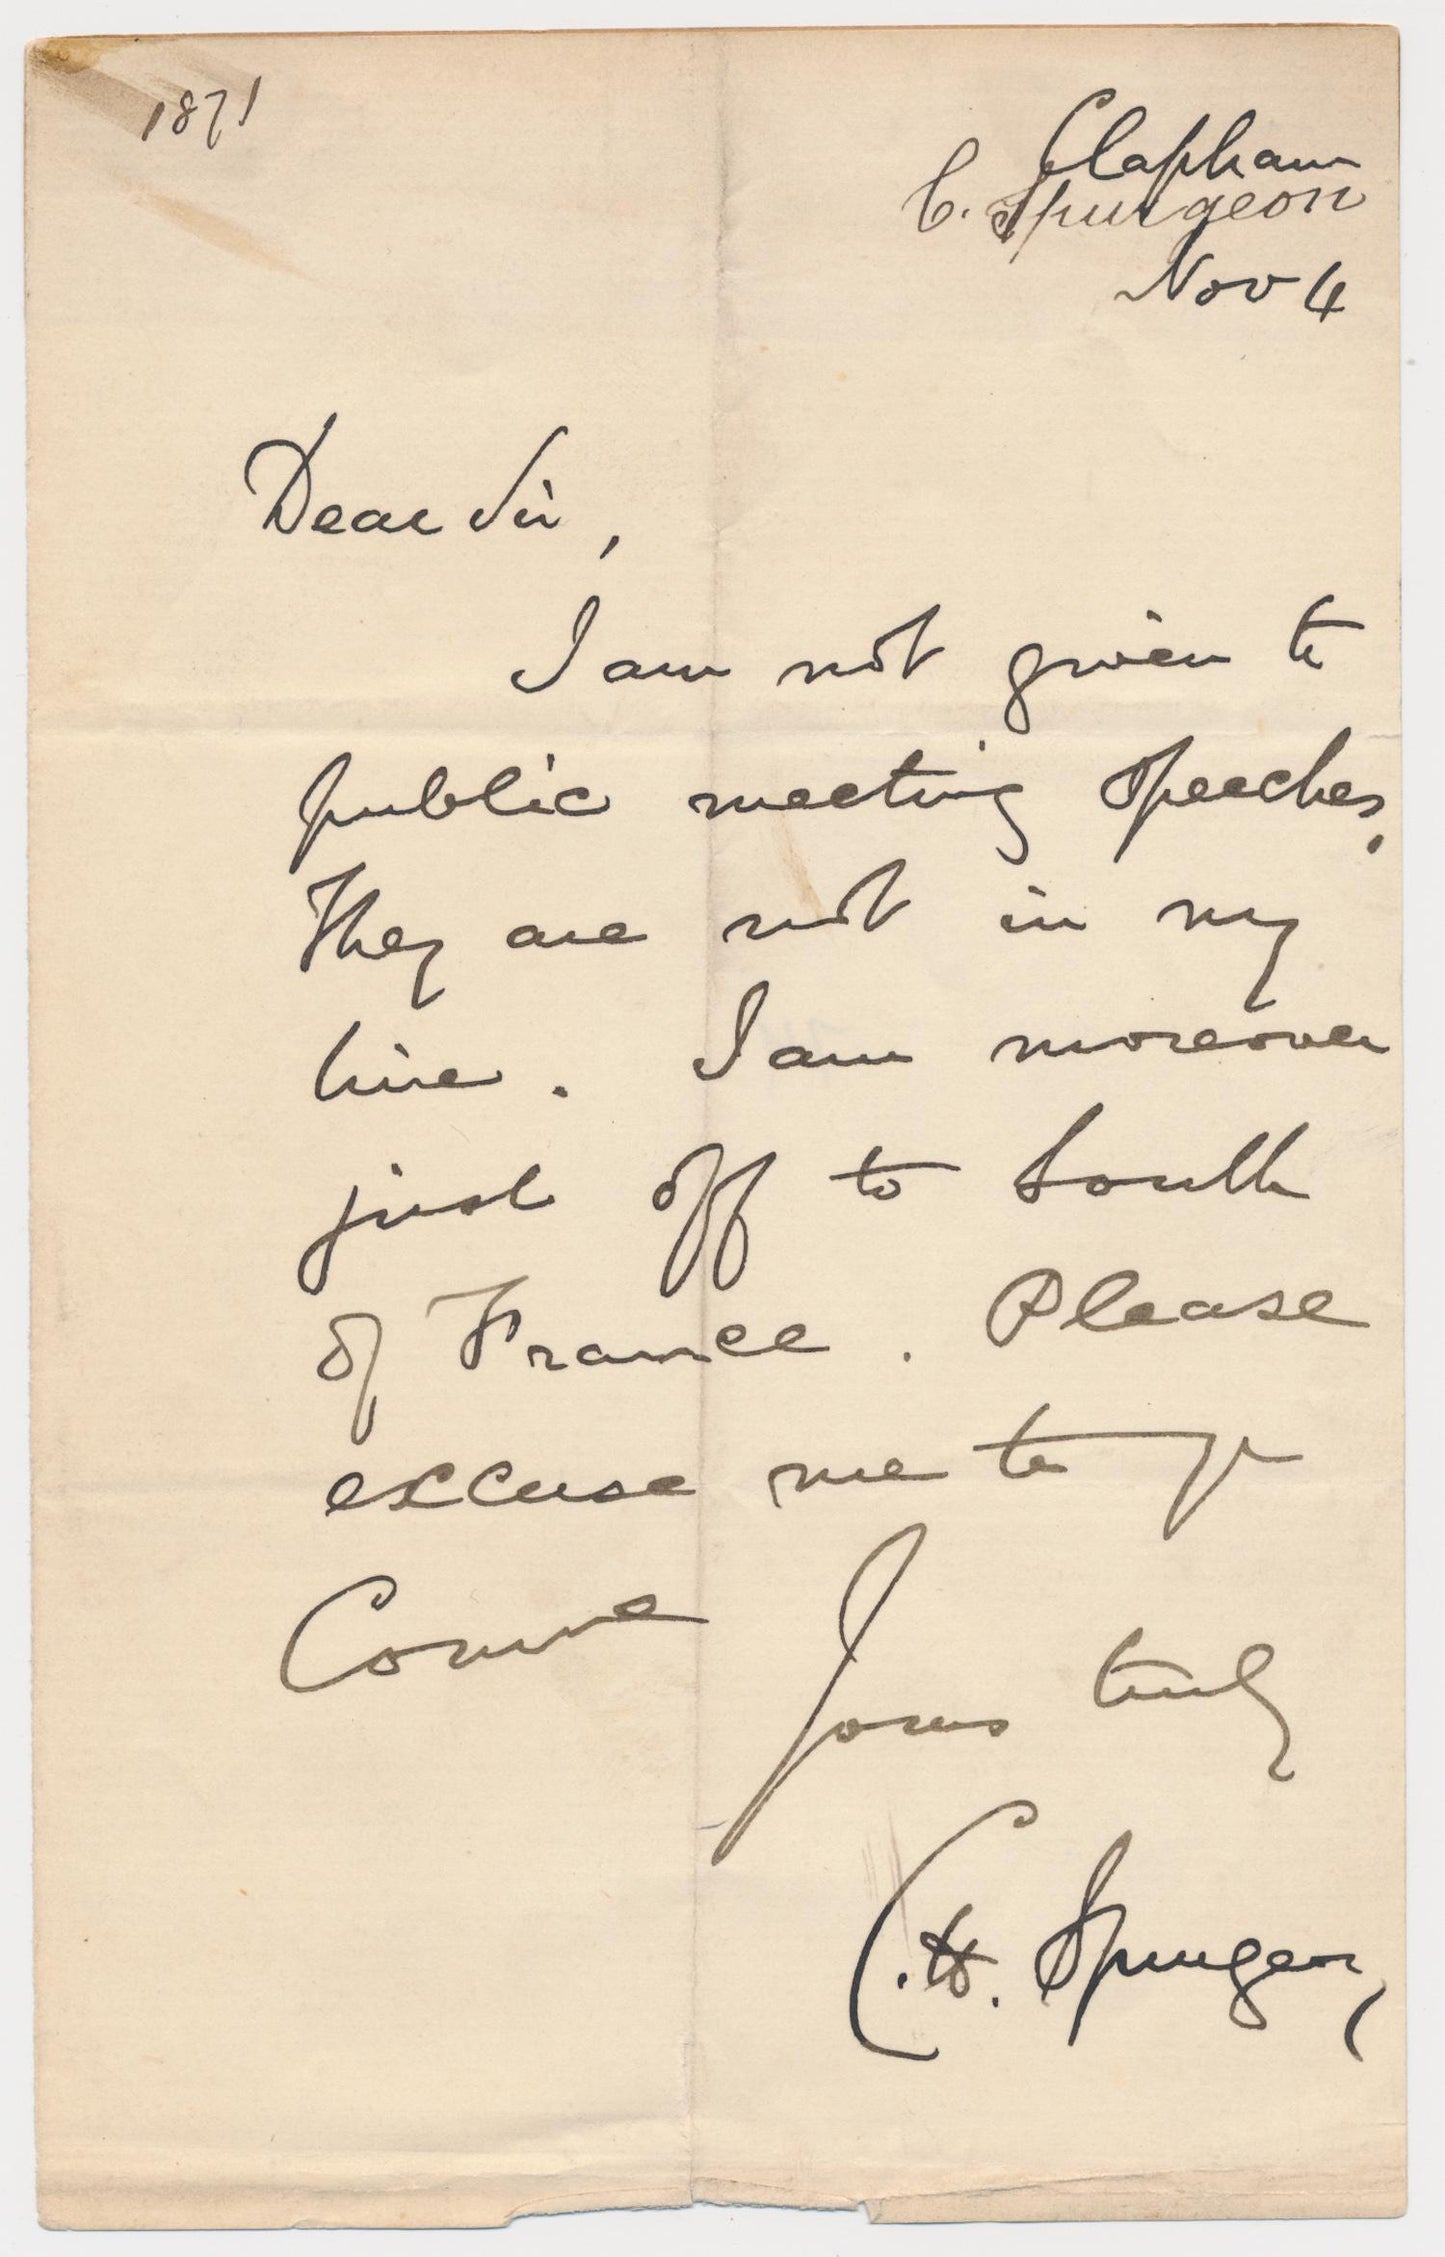 1871
Clapham
C. Spurgeon
Nov 4
Dear Sir,
I am not given to
public meeting speeches.
They are not in my
line. I am moreover
just off to South
of France. Please
excuse me to yr
Comme
Yours truly
C. H. Spurgeon